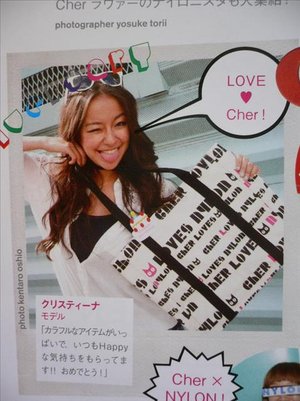 Cher ラヴァーのナイロニスタも大集結!
photographer yosuke torii
LOVE
♥
Cher!
photo kentaro oshio
NYLON
CHER LOVES NYLON
CHER LOVE
クリスティーナ
モデル
「カラフルなアイテムがいっ
ぱいで、いつもHappy
な気持ちをもらってま
す!! おめでとう!」
Cher ×
NYLON!
NYLON